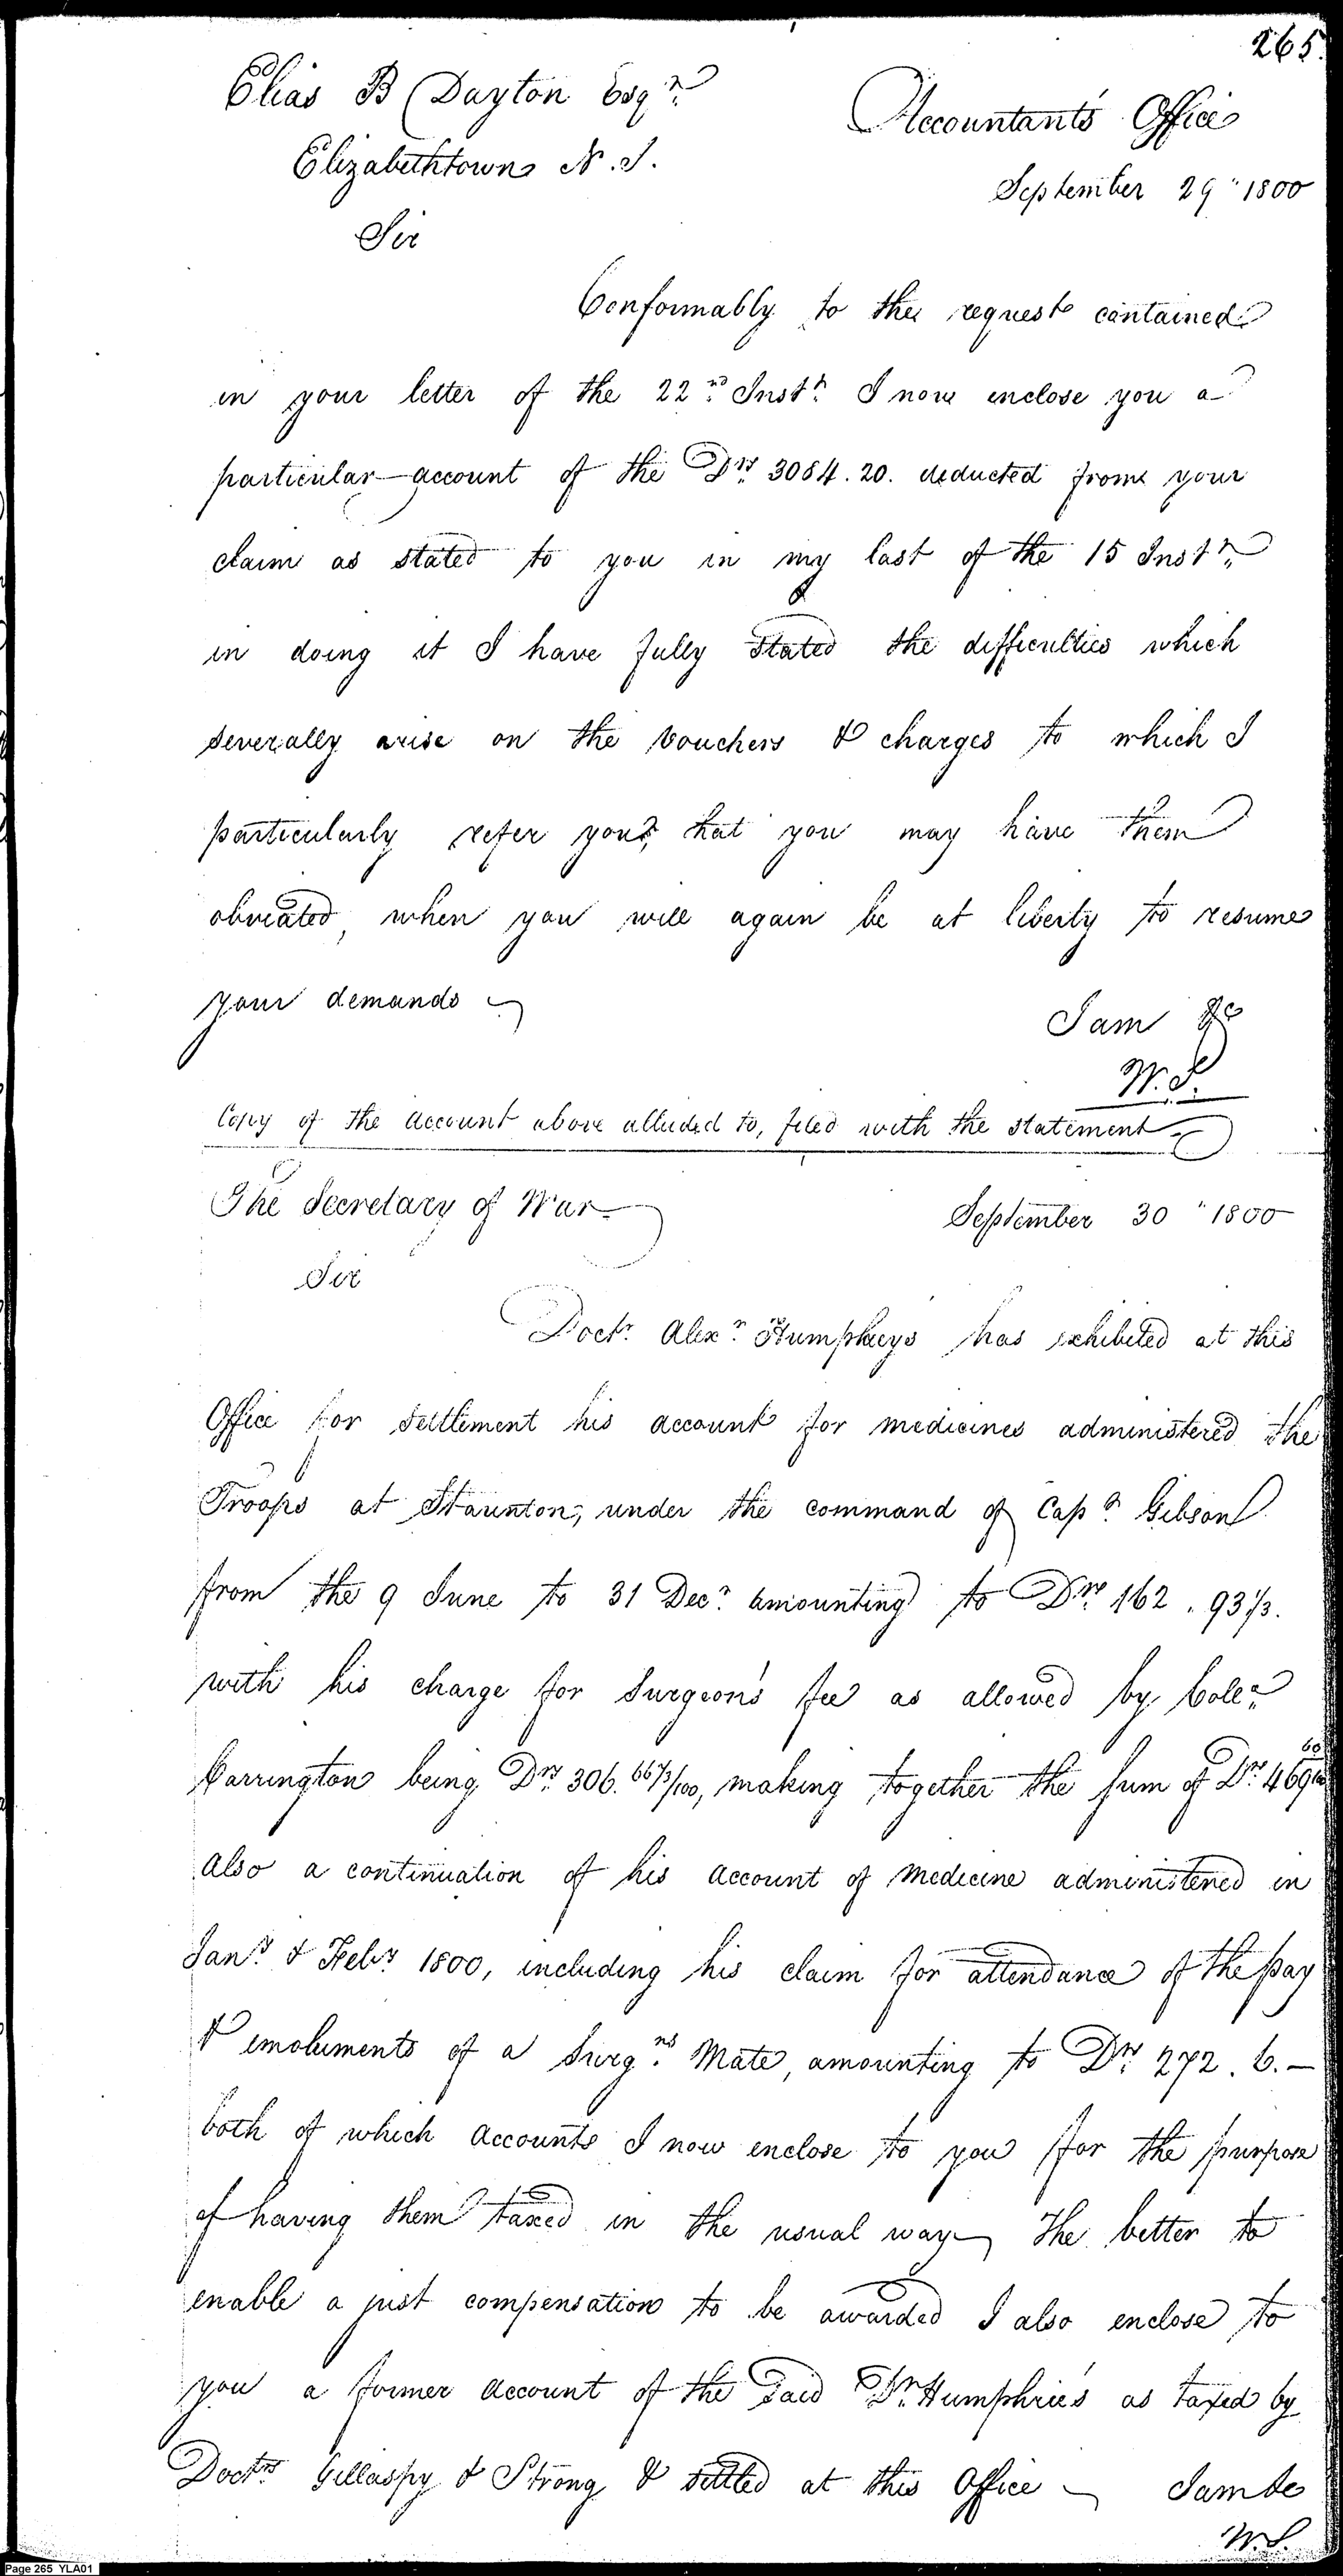 265.
Elias B Dayton Esqr.
Elizabethtown N.J.
Accountants Office
September 29 1800
Sir
Conformably to the request contained
in your letter of the 22nd Instt. I now enclose you a
particular account of the Drs. 3084.20. deducted from your
claim as stated to you in my last of the 15 Instt.
in doing it I have fully stated the difficulties which
severally arise on the vouchers & charges to which I
particularly refer you, that you may have them
obviated, when you will again be at liberty to resume
your demands
I am &c
W.S.
Copy of the account above alluded to, filed with the statement
The Secretary of War
September 30 1800
Sir
Doctr. Alexr. Humphreys has exhibited at this
Office for settlement his account for medicines administered the
Troops at Staunton, under the command of Capt. Gibson
from the 9 June to 31 Decr. amounting to Drs. 162.93 1/3.
with his charge for Surgeon's fee as allowed by Coll.
Carrington being Drs. 306.66 2/3/100, making together the sum of Drs. 469 60/100
also a continuation of his account of medicine administered in
Jany. & Feby. 1800, including his claim for attendance of the pay
& emoluments of a Surgns. Mate, amounting to Drs. 272.6.—
both of which accounts I now enclose to you for the purpose
of having them taxed in the usual way The better to
enable a just compensation to be awarded I also enclose to
you a former account of the said Dr. Humphries as taxed by
Doctrs. Gillaspy & Strong & settled at this Office I am &c
W.S.
Page 265 YLA01